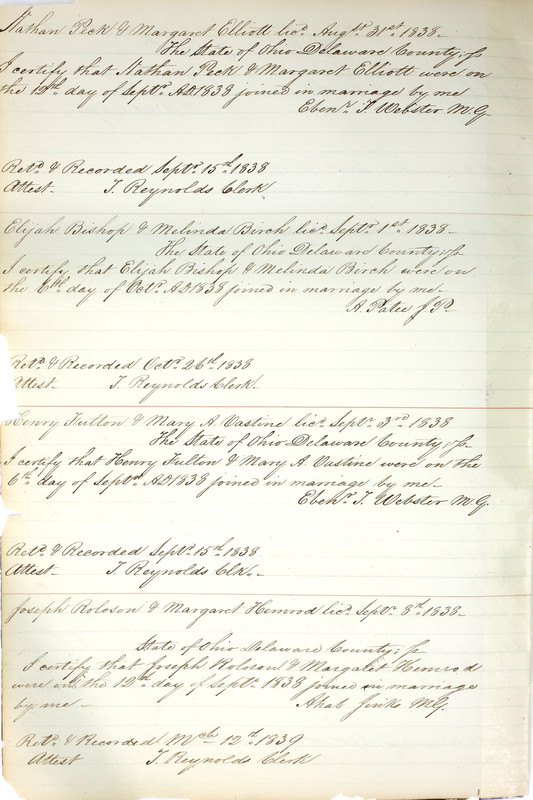 Nathan Peck & Margaret Elliott licd. Augst. 31st. 1838.
The State of Ohio Delaware County; ss
I certify that Nathan Peck & Margaret Elliott were on
the 12th. day of Septr. AD 1838 joined in marriage by me
Ebenr. T. Webster M.G.
Retd. & Recorded Septr. 15th. 1838
Attest. T. Reynolds Clerk.
Elijah Bishop & Melinda Birch licd. Septr. 1st. 1838.
The State of Ohio Delaware County; ss
I certify that Elijah Bishop & Melinda Birch were on
the 6th. day of Octr. AD 1838 joined in marriage by me.
A. Patee J P.
Retd. & Recorded Octr. 26th. 1838
Attest. T. Reynolds Clerk.
Henry Fulton & Mary A. Vastine licd. Septr. 3rd. 1838
The State of Ohio Delaware County; ss.
I certify that Henry Fulton & Mary A. Vastine were on the
6th. day of Septr. AD 1838 joined in marriage by me.
Ebenr. T. Webster M.G.
Retd. & Recorded Septr. 15th. 1838
Attest. T. Reynolds Clk.
Joseph Roloson & Margaret Hemrod licd. Septr. 8th. 1838.
State of Ohio Delaware County; ss
I certify that Joseph Roloson & Margaret Hemrod
were on the 12th day of Septr. 1838 joined in marriage
by me. Ahab Jinks M.G.
Retd. & Recorded Mch. 12th. 1839
Attest T. Reynolds Clerk